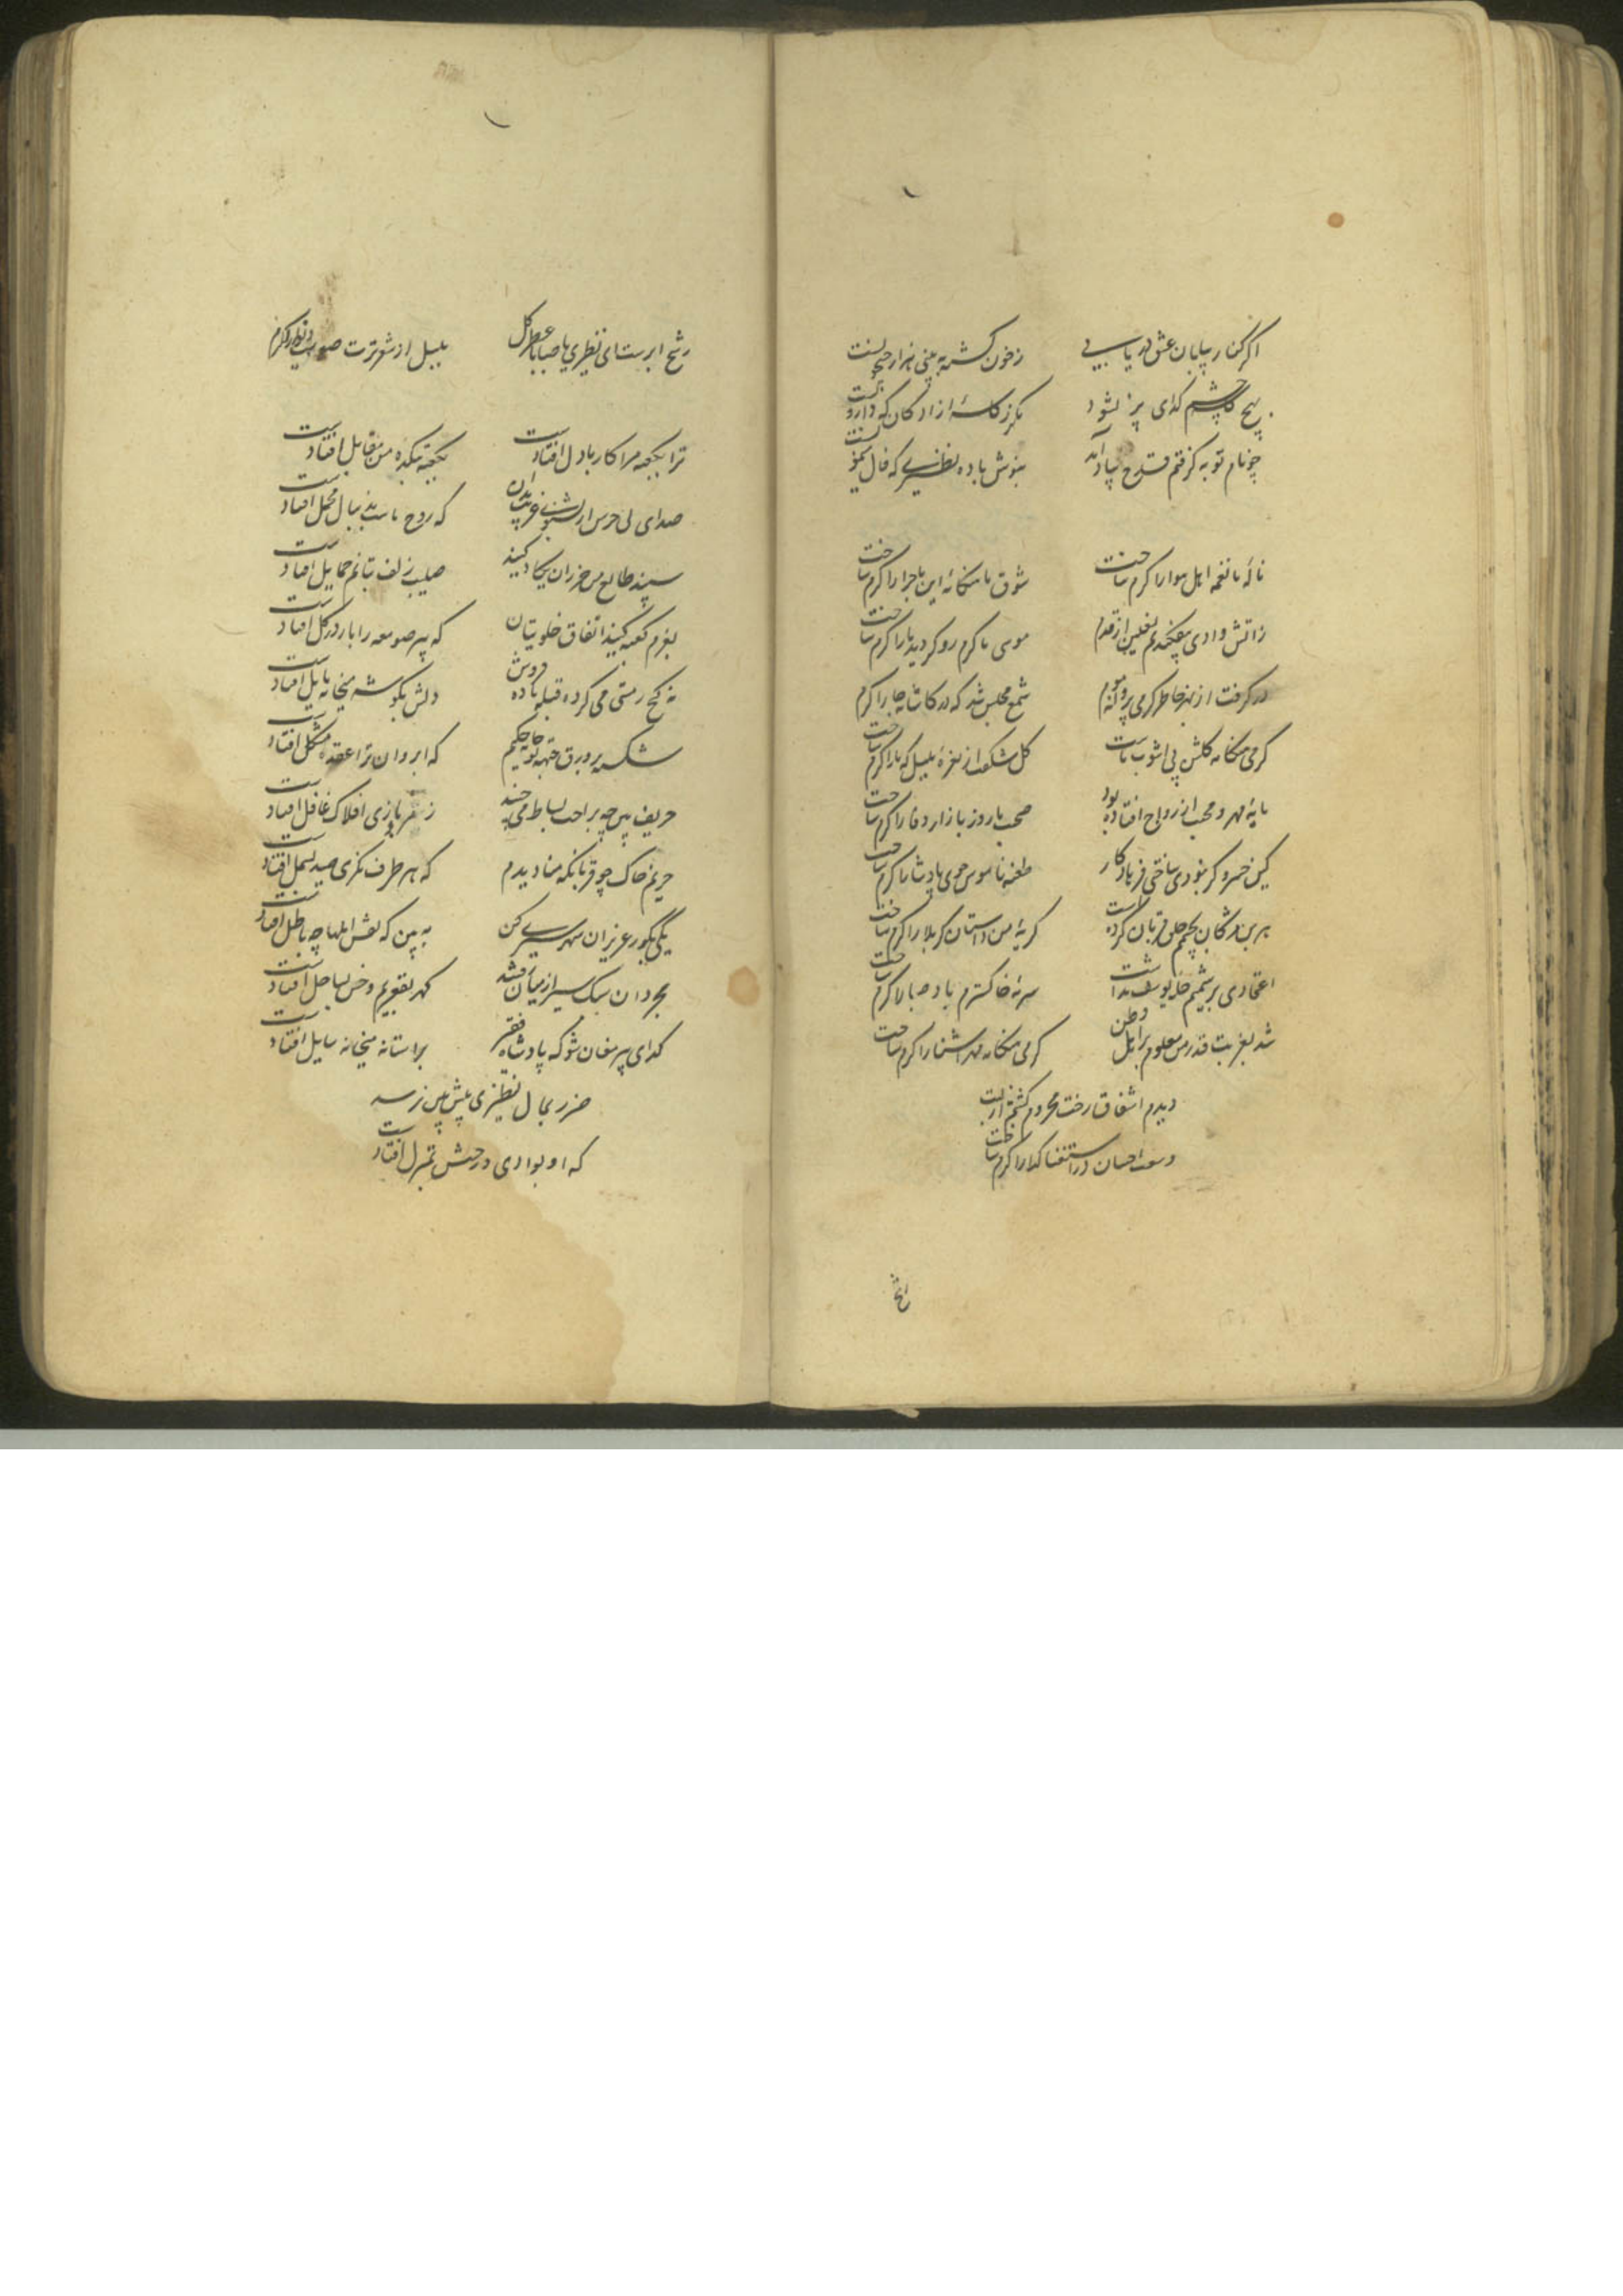 اگر کنار بیابان عشق دریابی
ز خون کشته ببینی هزار جیحونست
بهیچ کاسه چشم گدای پر نشود
مگر ز کاسه آزادگان که وارونست
چو نام توبه گرفتم قدح بیاد آمد
بنوش باده نظیری که فال
ناله با نغمه اهل هوا را گرم ساخت
شوق ما هنگامه این ماجرا را گرم ساخت
ز آتش وادی نعلین از قدم
موسی ما گرم رو کردید پا را گرم ساخت
در گرفت از بهر خاطر گرمی پروانه ام
شمع مجلس شد که در کاشانه جا را گرم ساخت
گرمی هنگامه گلشن بی آشوب ماست
گل شکفت از نعره بلبل که ما را گرم ساخت
مایه مهر و محبت از رواج افتاده بود
صحبت ما روز بازار وفا را گرم ساخت
کین خسرو گر نبودی ساختی فرهاد کار
طعنه ناموس خوی پادشا را گرم ساخت
هر بن مژگان بچشمم حلق قربان کرده است
گریه من داستان کربلا را گرم ساخت
اعتمادی بر شمیم یوسف نداشت
سرمه خاکسترم باد صبا را گرم ساخت
شد بغربت قدر من معلوم بر اهل وطن
گرمی هنگامه مهر آشنا را گرم ساخت
دیدم اشفاق رخت محروم گشتم از لبت
وسعت احسان در استغنا گدا را گرم ساخت
رشح
رشح ابر تست ای نظیری یا صبا یا عطر گل
بلبل از شعر ترت صوت
ترا بکعبه مرا کار با دل افتادست
بکعبه بتکده من مقابل افتادست
صدای بی جرس از
که روح ماست بدنبال محمل افتادست
سپند طالع من
صلیب زلف بتانم حمایل افتادست
بعزم کعبه کنید اتفاق خلوتیان
که پیر صومعه را بار در گل افتادست
نه کج ز مستی می کرده قبله باده فروش
دلش بگوشه میخانه مایل افتادست
شکسته بر ورق جبهه تو جا حکیم
که ابروان ترا عقده مشکل افتادست
حریف پس چه براحت بساط می چیند
ز بازی افلاک غافل افتادست
حریم خاک چو قربانگه منا دیدم
که هر طرف نگری صید بسمل افتادست
یکی بگور عزیزان شهر سیری کن
ببین که نقش املها چه باطل افتادست
مجردان سبک سیر از میان رفتند
گهر بقعر یم و خس بساحل افتادست
گدای پیر مغان شو که پادشاه فقر
بر آستانه میخانه سایل افتادست
ضرر بحال نظیری ز پیش و پس نرسد
که او بوادی وحشت بمنزل افتادست